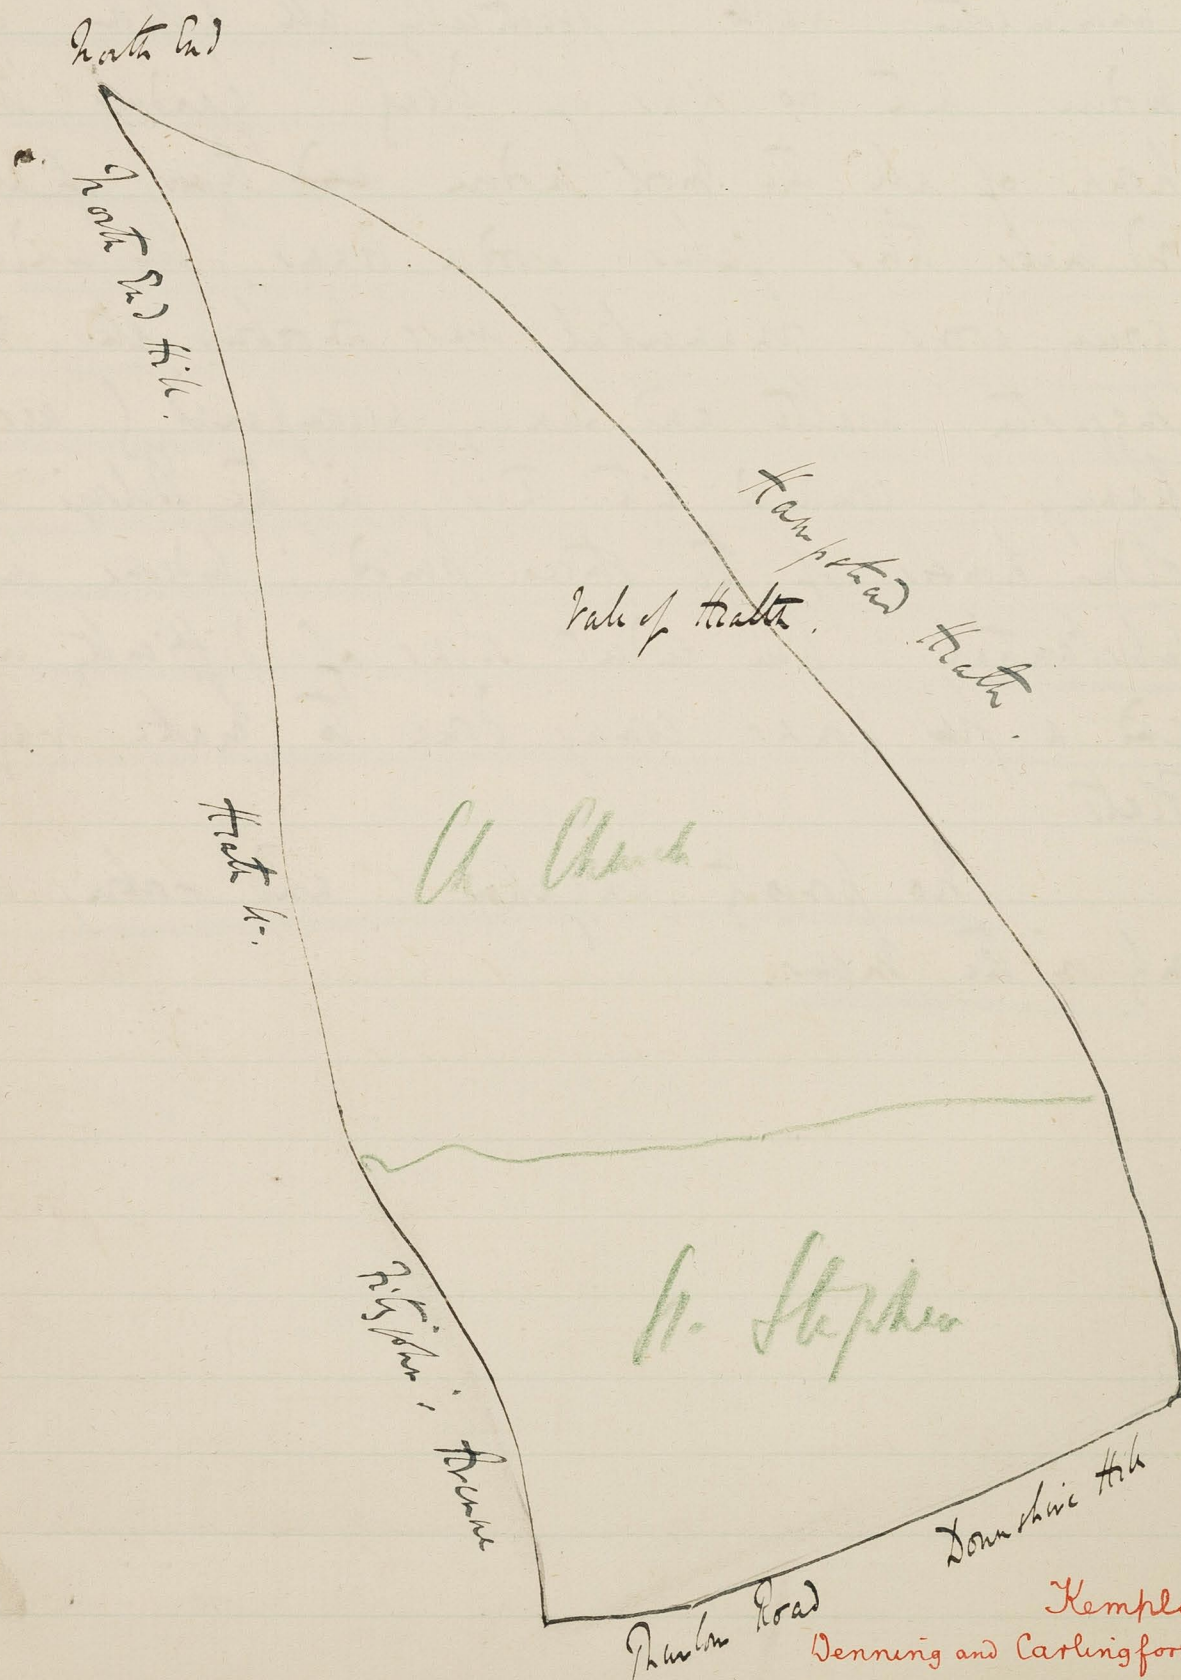 North End
North End Hill.
Hampstead Heath.
Vale of Health.
Heath St.
Ch Church
St. Stephen
Fitzjohn's Avenue
Downshire Hill
Thurlow Road
Kempl
Denning and Carlingfor